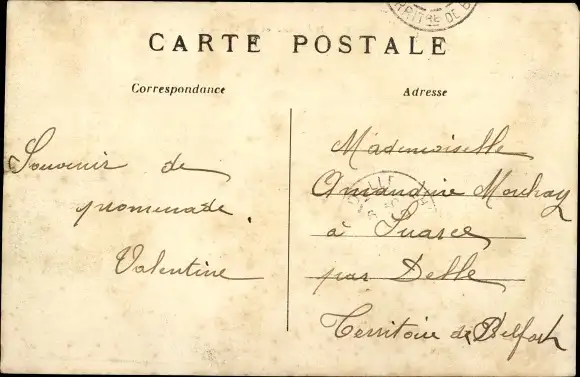 CARTE POSTALE
Correspondance
Adresse
Souvenir de
promenade.
Valentine
Mademoiselle
Amandine
à Suarce
par Delle
Territoire de Belfort